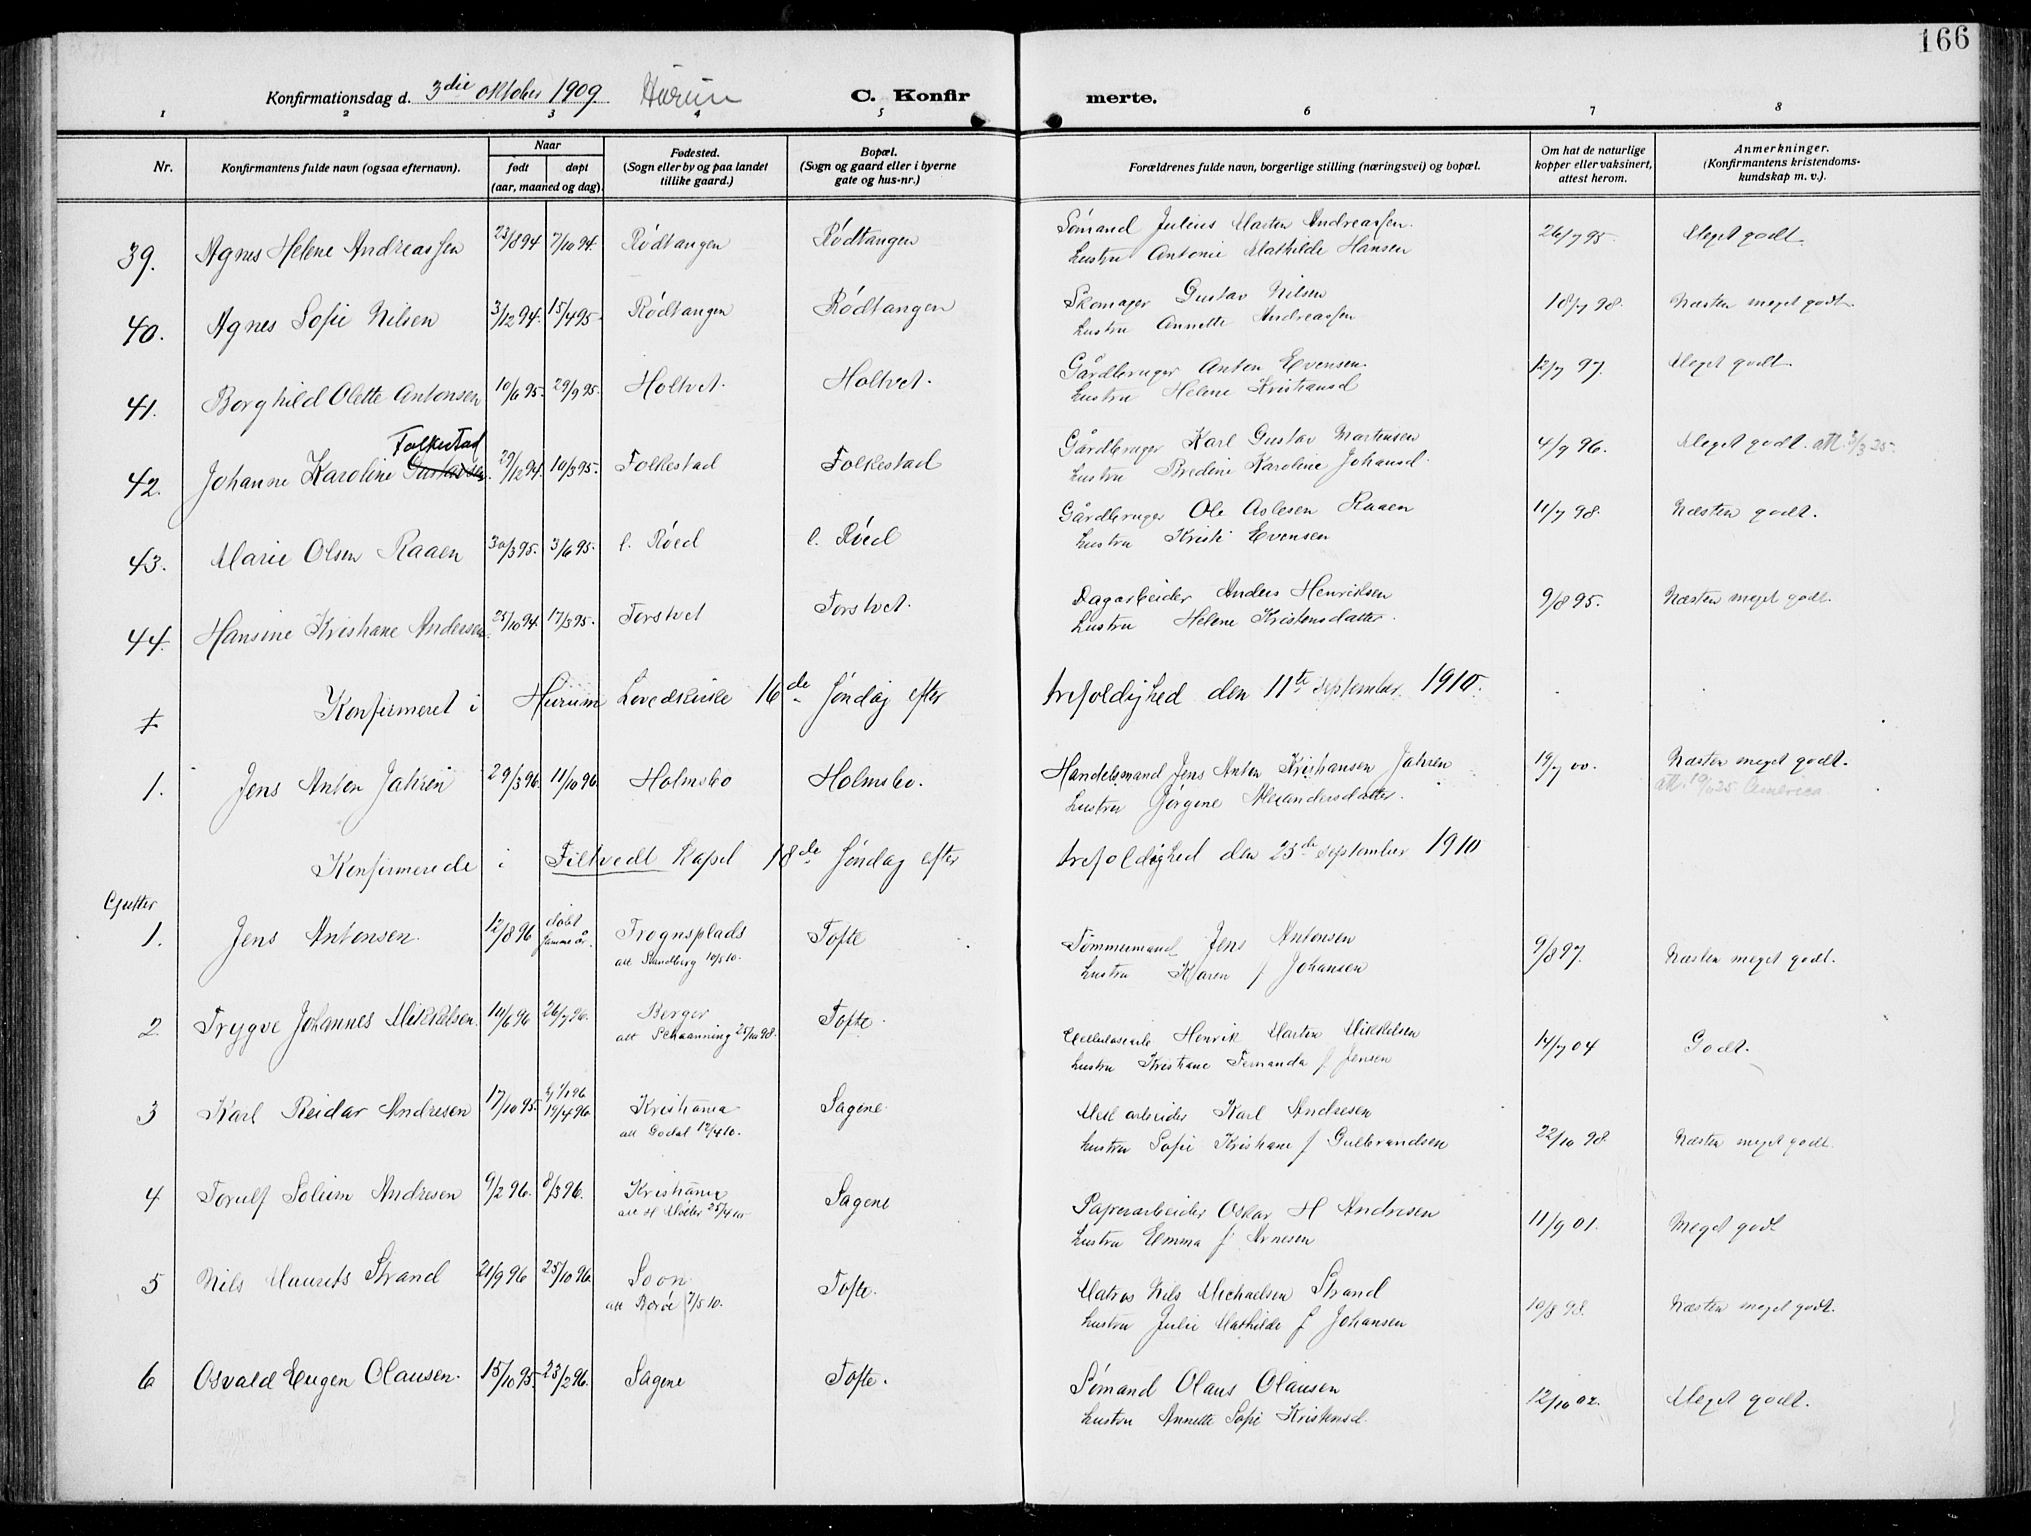 166
Konfirmationsdag d. 3die oktober 1909. Hurum C. Konfirmerte.
1 2 3 4 5 6 7 8
Nr.
Konfirmantens fulde navn (ogsaa efternavn).
Naar
født døpt
(aar, maaned og dag).
Fødested.
(Sogn eller by og paa landet
tillike gaard.)
Bopæl.
(Sogn og gaard eller i byerne
gate og hus-nr.)
Forældrenes fulde navn, borgerlige stilling (næringsvei) og bopæl.
Om hat de naturlige
kopper eller vaksinert,
attest herom.
Anmerkninger.
(Konfirmantens kristendoms-
kundskap m. v.).
39. Agnes Helene Andreassen 23/8 94 7/10 94. Rødtangen Rødtangen Sømand Julius Martin Andreassen. 26/7 95. Meget godt
Hustru Antonie Mathilde Hansen
40. Agnes Sofie Nilsen 3/12 94. 15/4 95. Rødtangen Rødtangen Skomager Gustav Nilsen 18/7 98. Næsten meget godt
Hustru Annette Andreassen
41. Borghild Olette Antonsen 10/6 95. 29/9 95. Holtvet. Holtvet. Gårdbruger Anton Evensen. 12/7 97. Meget godt
Hustru Helene Kristiansd
Folkestad
42. Johanne Karoline Gustavsen. 29/12 94. 10/3 95. Folkestad Folkestad Gårdbruger Karl Gustav Martinsen 4/9 96. Meget godt. att. 3/3 25.
Hustru Bredine Karoline Johansd.
43. Marie Olsen Raaen 30/3 95. 3/6 95. l. Røed l. Røed Gårdbruger Ole Aslesen Raaen 11/7 98. Næsten godt.
Hustru Kristi Evensen
44. Hansine Kristiane Andersen. 25/10 94. 17/3 95. Torstvet Torstvet. Dagarbeider Anders Henriksen 9/8 95. Næsten meget godt.
Hustru Helene Kristensdatter.
Konfirmeret i Hurum Hovedkirke 16de Søndag efter trefoldighed den 11te september 1910.
1. Jens Anton Jahren 29/3 96. 11/10 96. Holmsbo Holmsbo. Handelsmand Jens Anton Kristiansen Jahren 19/7 00. Næsten meget godt.
Hustru Jørgine Alexandersdatter. att. America
Konfirmerede i Filtvedt Kapel 18de Søndag efter trefoldighed den 25de september 1910
Gutter
1. Jens Antonsen. 12/8 96 døbt samme år. Trognsplads Tofte Tømmermand Jens Antonsen 9/8 97. Næsten meget godt.
att Sandberg 10/5 10. Hustru Karen f Johansen
2. Trygve Johannes Mikkelsen. 10/6 96 26/7 96. Berger Tofte. Cellulosearb Henrik Martin Mikkelsen 14/7 04 Godt.
att Schaanning 25/10 98. Hustru Kristiane Fernanda f Jensen
3 Karl Reidar Andresen 17/10 95. 19/4 96. Kristiania Sagene Karl Andresen 22/10 98. Næsten meget godt.
att Godal 12/4 10. Hustru Sofie Kristiane f Gulbrandsen
4 Torulf Solum Andresen 9/2 96. 8/3 96. Kristiania Sagene Papirarbeider Oskar H Andresen 11/9 01. Meget godt
att H Møller 25/4 10. Hustru Emma f Arnesen
5 Nils Maurits Strand 21/9 96 25/10 96. Soon Tofte. Matros Nils Michaelsen Strand 10/8 98. Næsten meget godt.
7/5 10. Hustru Julie Mathilde f Johansen
6 Osvald Eugen Olausen. 15/10 95. 23/2 96. Sagene Tofte. Sømand Olaus Olausen 12/10 02. Meget godt.
Hustru Annette Sofie Kristensd.